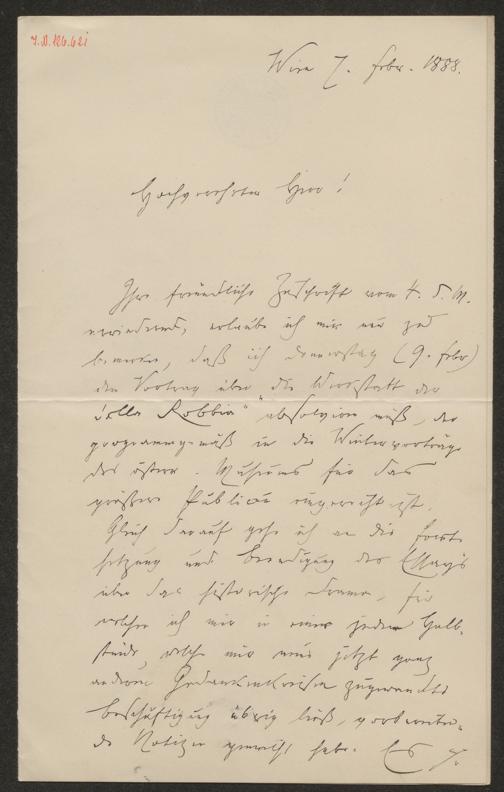 J.N. 126.621
Wien 7. Febr. 1888.
Hochverehrter Herr!
Ihre freundliche Zuschrift vom 4. d. M.
erwiedernd, erlaube ich mir nur zu
bemerken, daß ich Donnerstag (9. Febr)
den Vortrag über die Werkstatt der
"della Robbia" absolviren muß, der
programmgemäß in die Wintervorträge
des österr. Museums für das
größere Publicum eingereiht ist.
Gleich darauf gehe ich an die Fort-
setzung und Beendigung des Essay's
über das historische Drama, für
welchen ich mir in einer jeden Halb-
stunde, welche mir eine jetzt ganz
anderen Gedankenkreisen zugewandte
Beschäftigung übrig ließ, vorbereiten-
de Notizen gemacht habe. Es